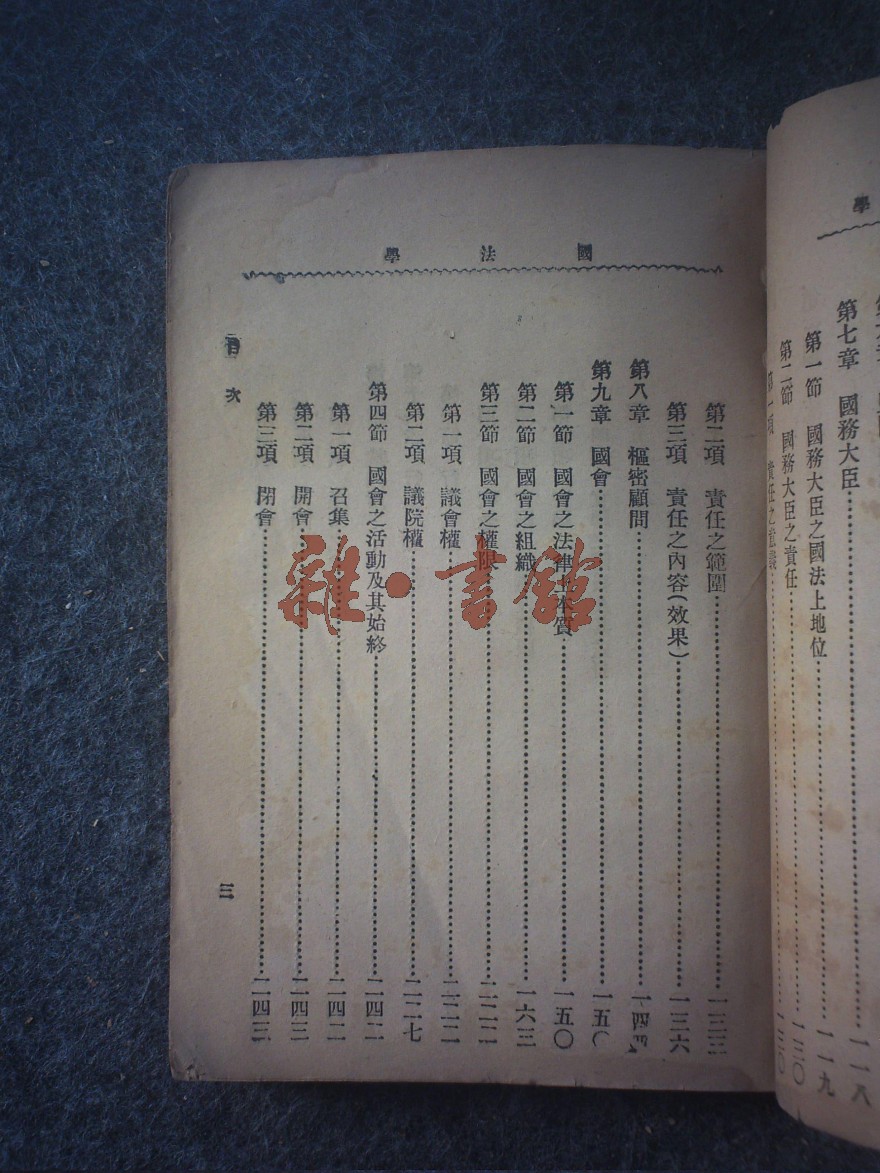 學
第七章 國務大臣……一一八
第一節 國務大臣之國法上地位……一一九
第二節 國務大臣之責任……一三〇
第一項 責任之意義……一三〇
國法學
第二項 責任之範圍……一三三
第三項 責任之內容(效果)……一三六
第八章 樞密顧問……一四
第九章 國會……一五〇
第一節 國會之法律上本質……一五〇
第二節 國會之組織……一六三
第三節 國會之權限……二二二
第一項 議會權……二二二
第二項 議院權……二二七
第四節 國會之活動及其始終……二四二
第一項 召集……二四二
第二項 開會……二四三
第三項 閉會……二四三
目次
三
雜·書館